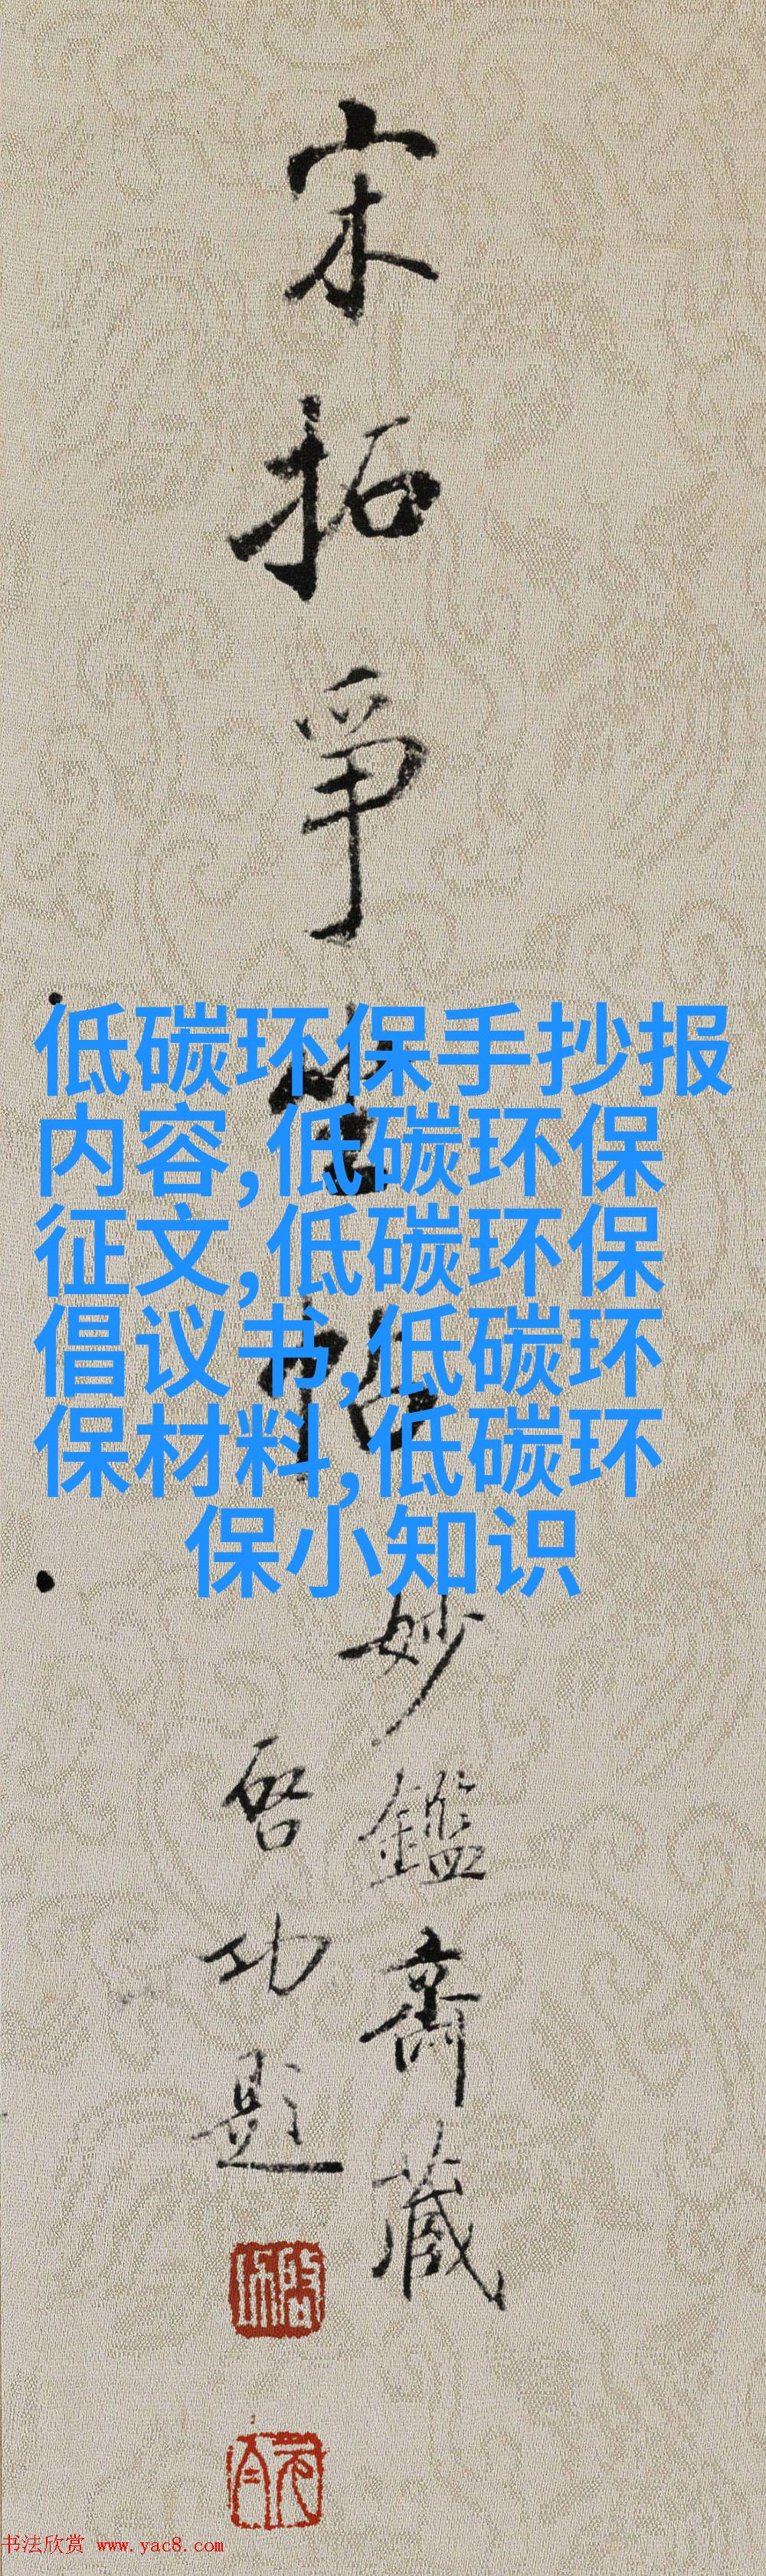 宋拓争
低碳环保手抄报
内容,低碳环保
征文,低碳环保
倡议书,低碳环
保材料,低碳环
保小知识
妙鑑斋藏
启功题
书法欣赏 www.yac8.com